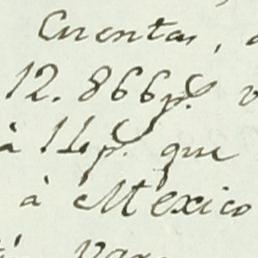 Cuentas,
12.866p.s
à 11.p.s que
à Mexico